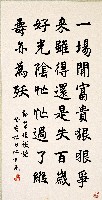 一場閒富貴狠狠爭
來雖得還是失百歲
好光陰忙忙過了縱
壽亦為夭